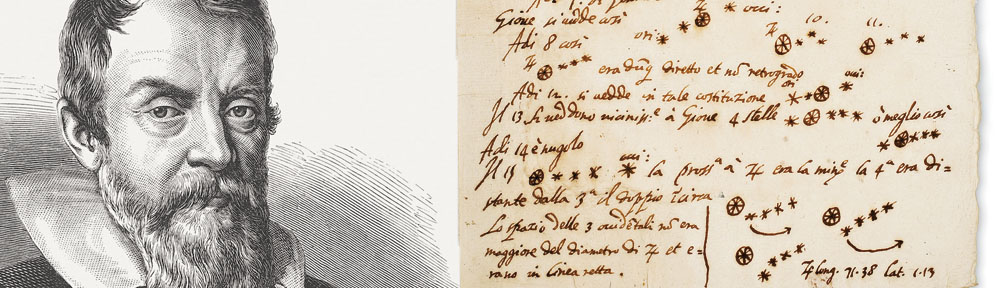 Gioue si uedde così
♃ * occi:
Adi 8 così ori: 10. 11.
♃ era dūq̨ diretto et nō retrogrado
Adi 12. si uedde in tale costituzione ori occi:
Il 13 si ueddono uiciniss.e à Gioue 4 stelle ò meglio così
Adi 14 è nugolo
Il 15 occi: la pross.a à ♃ era la min.e la 4.a era di=
stante dalla 3.a il doppio īcirca
Lo spazio delle 3 occidētali nō era
maggiore del diametro di ♃ et e=
rano in linea retta.
♃ long. 71.38 lat. 1.13